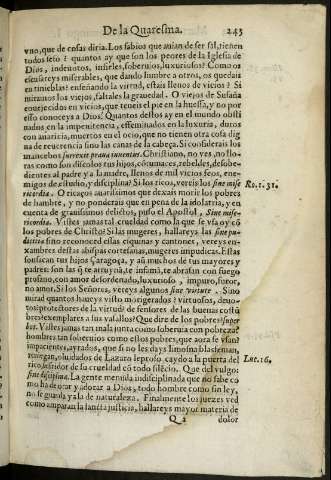 De la Quaresma. 243
vno, que de cosas diria. Los sabios que auian de ser sal, tienen
todos seso? quantos ay que son los peores de la Iglesia de
Dios, indeuotos, infieles, soberuios, luxuriosos? Como os
escureceys miserables, que dando lumbre a otros, os quedais
en tinieblas? enseñando la virtud, estais llenos de vicios? Si
miramos los viejos, faltales la grauedad. O viejos de Susaña
enuejecidos en vicios, que teneis el pie en la huessa, y no por
esso conoceys a Dios! Quantos destos ay en el mundo obsti
nados, en la impenitencia, effeminados en la luxuria, duros
con auaricia, muertos en el ocio, que no tienen otra cosa dig
na de reuerencia sino las canas de la cabeça. Si considerais los
mancebos surrexit praua iuuentus. Christiano, no ves, no llo-
ras como son discolos tus hijos, como rebeldes, desobe-
dientes al padre y a la madre, llenos de mil vicios feos, ene-
migos de estudio, y disciplina? Si los ricos, vereislos sine mise
ricordia. O ricaços auarissimos que dexais morir los pobres Ro. 1. 31.
de hambre, y no ponderais que en pena de la idolatria, y en
cuenta de grauissimos delictos, puso el Apostol, Sine mise-
ricordia. Vistes jamas tal crueldad como la que se vsa oy cõ
los pobres de Christo? Si las mugeres, hallareys las sine pu-
dicitia: sino reconoced estas esquinas y cantones, vereys en-
xambres destas abispas cortesanas, mugeres impudicas. Estas
sonsacan tus hijos Çaragoça, y aũ muchos de tus mayores y
padre: son las q̃ te arruynã, te infamã, te abrasan con fuego
profano, con amor desordenado, luxurioso, impuro, furor,
no amor. Si los Señores, vereys algunos sine virtute. Sino
mirad quantos haueys visto morigerados? virtuosos, deuo-
tos? protectores de la virtud? defensores de las buenas costũ
bres? exemplares a sus vasallos? Que dire de los pobres? super
bos. Vistes jamas tan mala junta como soberuia con pobreza?
hombres tan soberuios como estos pobres, que aora se vsan?
impacientes, ayrados, que si no les days limosna blasfeman,
reniegan, oluidados de Lazaro leproso, caydo a la puerta del Luc. 16.
rico, sufridor de su crueldad cõ todo silēcio. Que del vulgo?
sine disciplina. La gente menuda indisciplinada que no sabe co
mo ha de orar y adorar a Dios, todo hombre como sin ley,
no se guarda y la de naturaleza. Finalmente los juezes ved
como amparan la sancta justicia, hallareys mayor materia de
Q 2 dolor